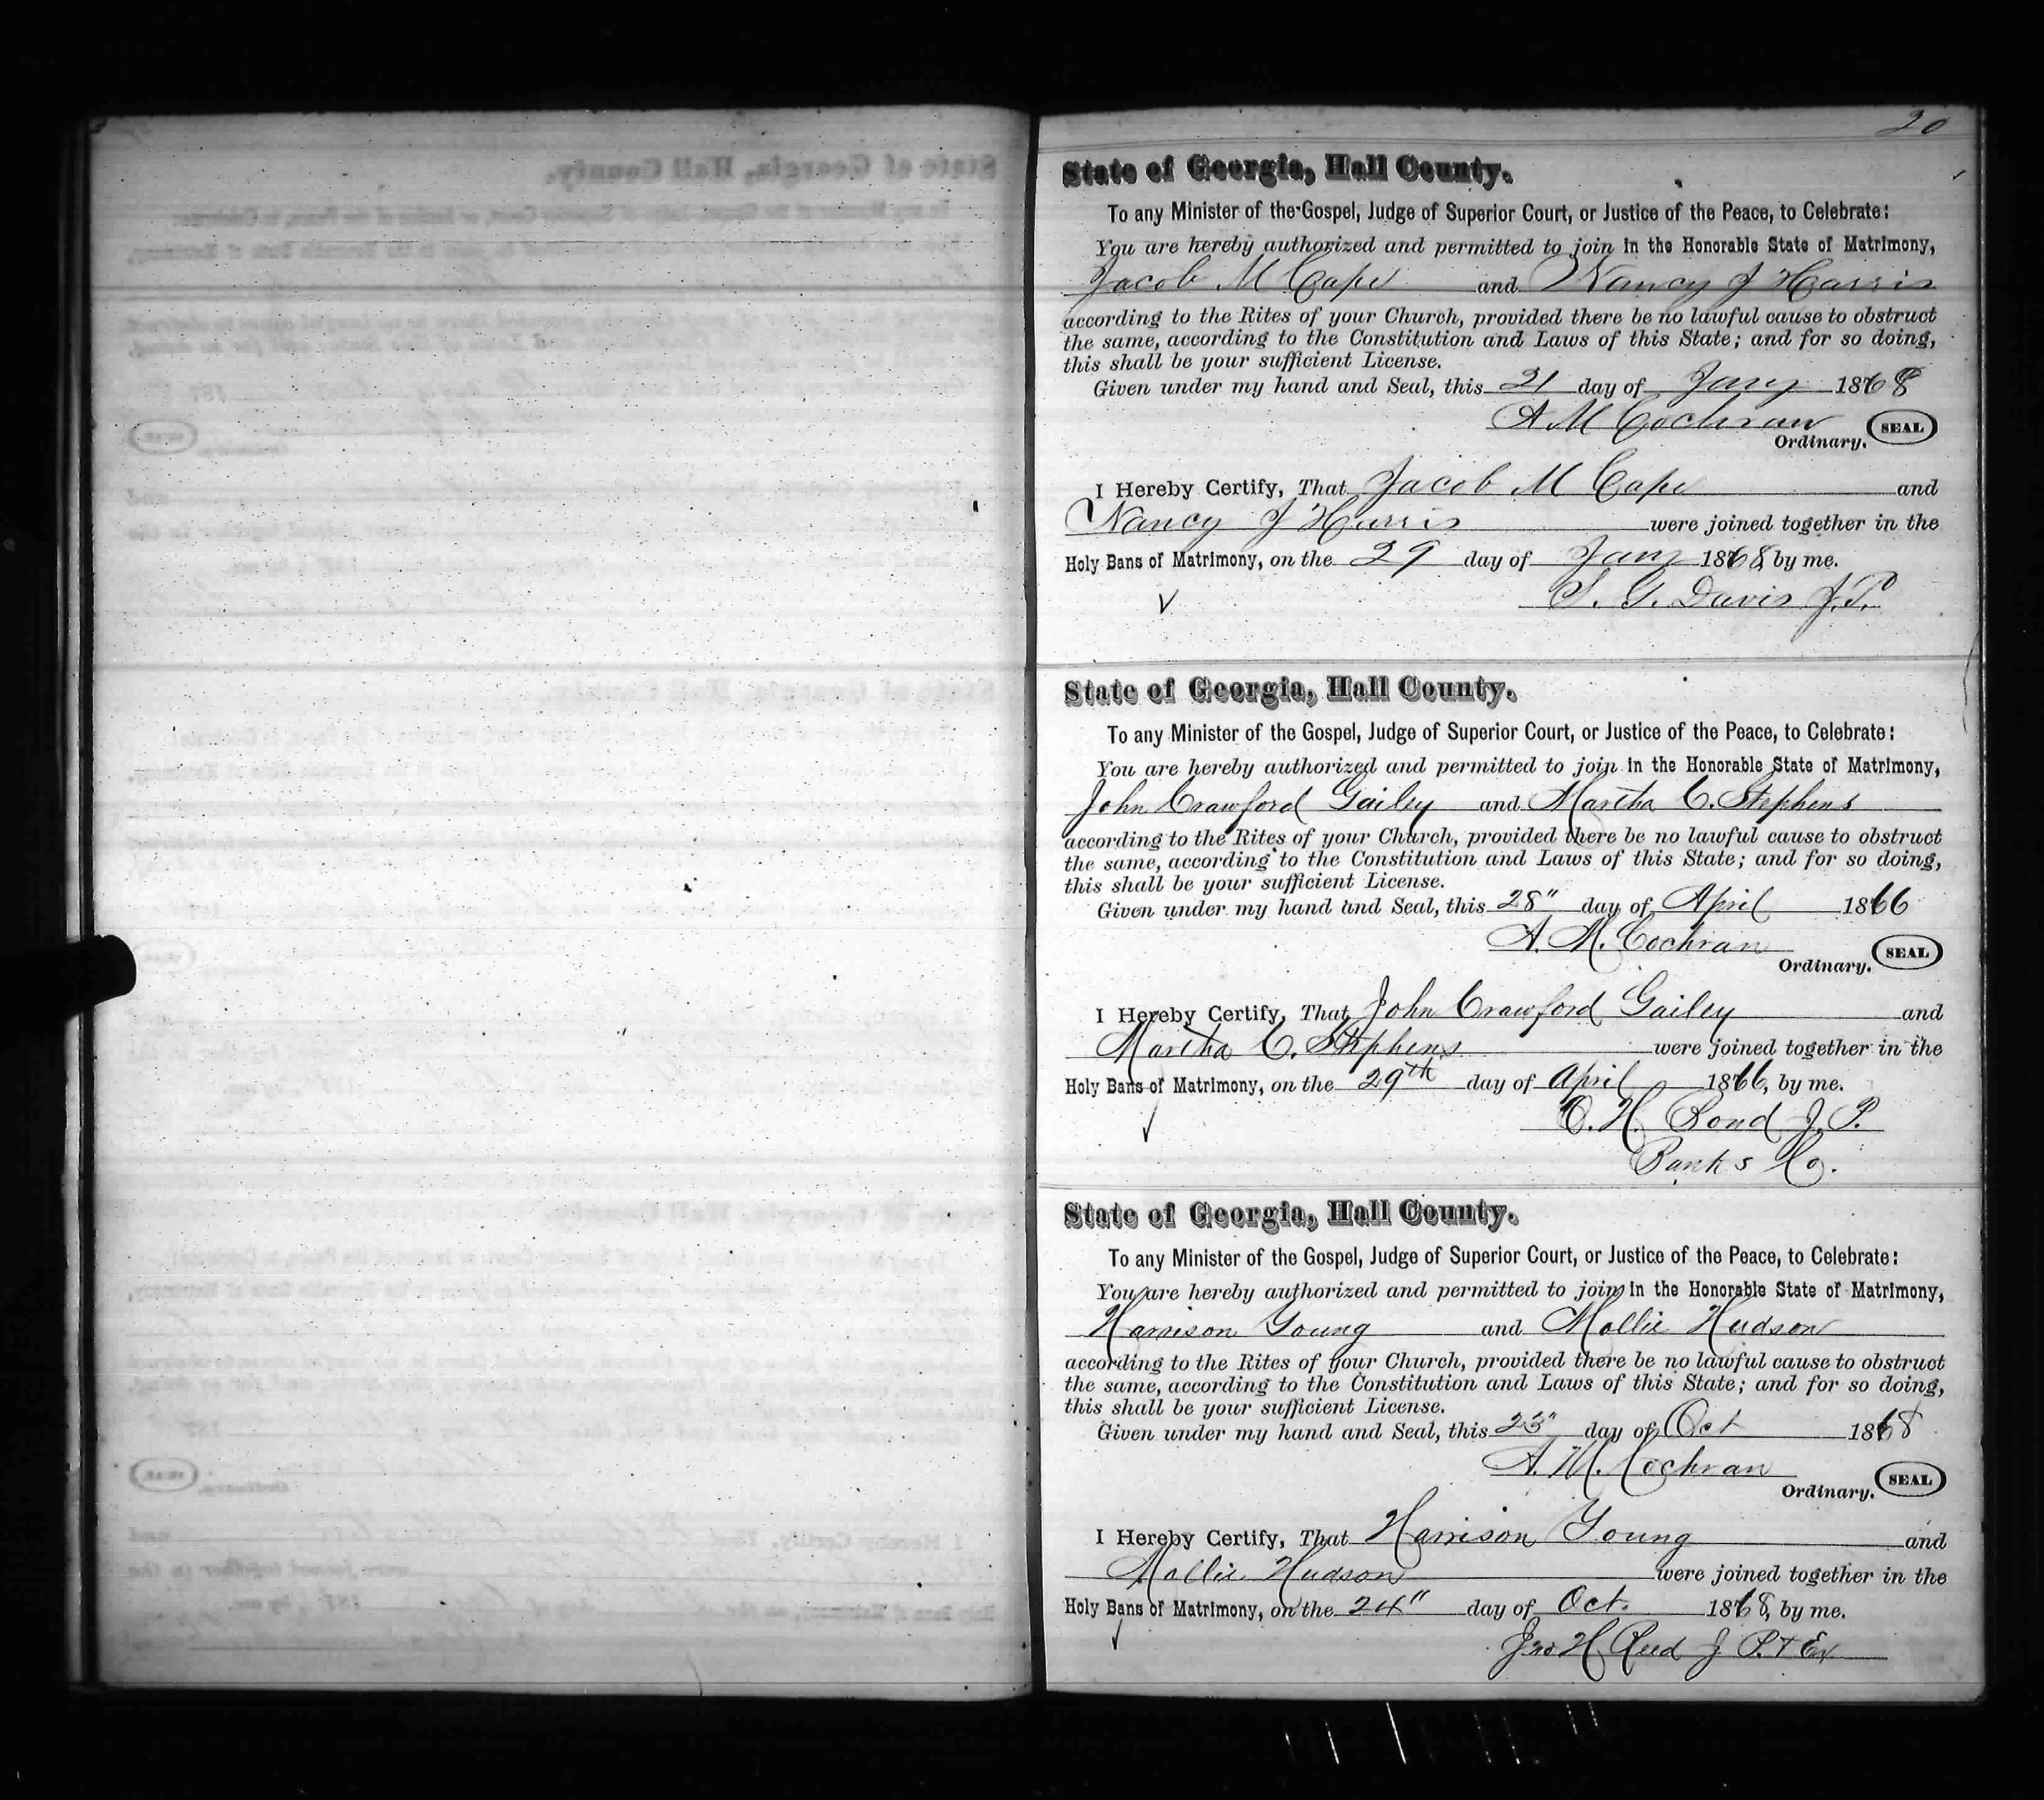 20
State of Georgia, Hall County.
To any Minister of the Gospel, Judge of Superior Court, or Justice of the Peace, to Celebrate:
You are hereby authorized and permitted to join in the Honorable State of Matrimony,
Jacob M Cape and Nancy J Harris
according to the Rites of your Church, provided there be no lawful cause to obstruct
the same, according to the Constitution and Laws of this State; and for so doing,
this shall be your sufficient License.
Given under my hand and Seal, this 21 day of Jany 1868
A M Cochran SEAL
Ordinary.
I Hereby Certify, That Jacob M Cape and
Nancy J Harris were joined together in the
Holy Bans of Matrimony, on the 29 day of Jany 1868, by me.
S. G. Davis J.P.
State of Georgia, Hall County.
To any Minister of the Gospel, Judge of Superior Court, or Justice of the Peace, to Celebrate:
You are hereby authorized and permitted to join in the Honorable State of Matrimony,
John Crawford Gailey and Martha C. Stephens
according to the Rites of your Church, provided there be no lawful cause to obstruct
the same, according to the Constitution and Laws of this State; and for so doing,
this shall be your sufficient License.
Given under my hand and Seal, this 28" day of April 1866
A. M. Cochran SEAL
Ordinary.
I Hereby Certify, That John Crawford Gailey and
Martha C. Stephens were joined together in the
Holy Bans of Matrimony, on the 29th day of April 1866, by me.
O. H. Bond J. P.
Banks Co.
State of Georgia, Hall County.
To any Minister of the Gospel, Judge of Superior Court, or Justice of the Peace, to Celebrate:
You are hereby authorized and permitted to join in the Honorable State of Matrimony,
Harrison Young and Mollie Hudson
according to the Rites of your Church, provided there be no lawful cause to obstruct
the same, according to the Constitution and Laws of this State; and for so doing,
this shall be your sufficient License.
Given under my hand and Seal, this 23" day of Oct 1868
A. M. Cochran SEAL
Ordinary.
I Hereby Certify, That Harrison Young and
Mollie Hudson were joined together in the
Holy Bans of Matrimony, on the 24" day of Oct. 1868, by me.
Jno H Reed J P. + Ex